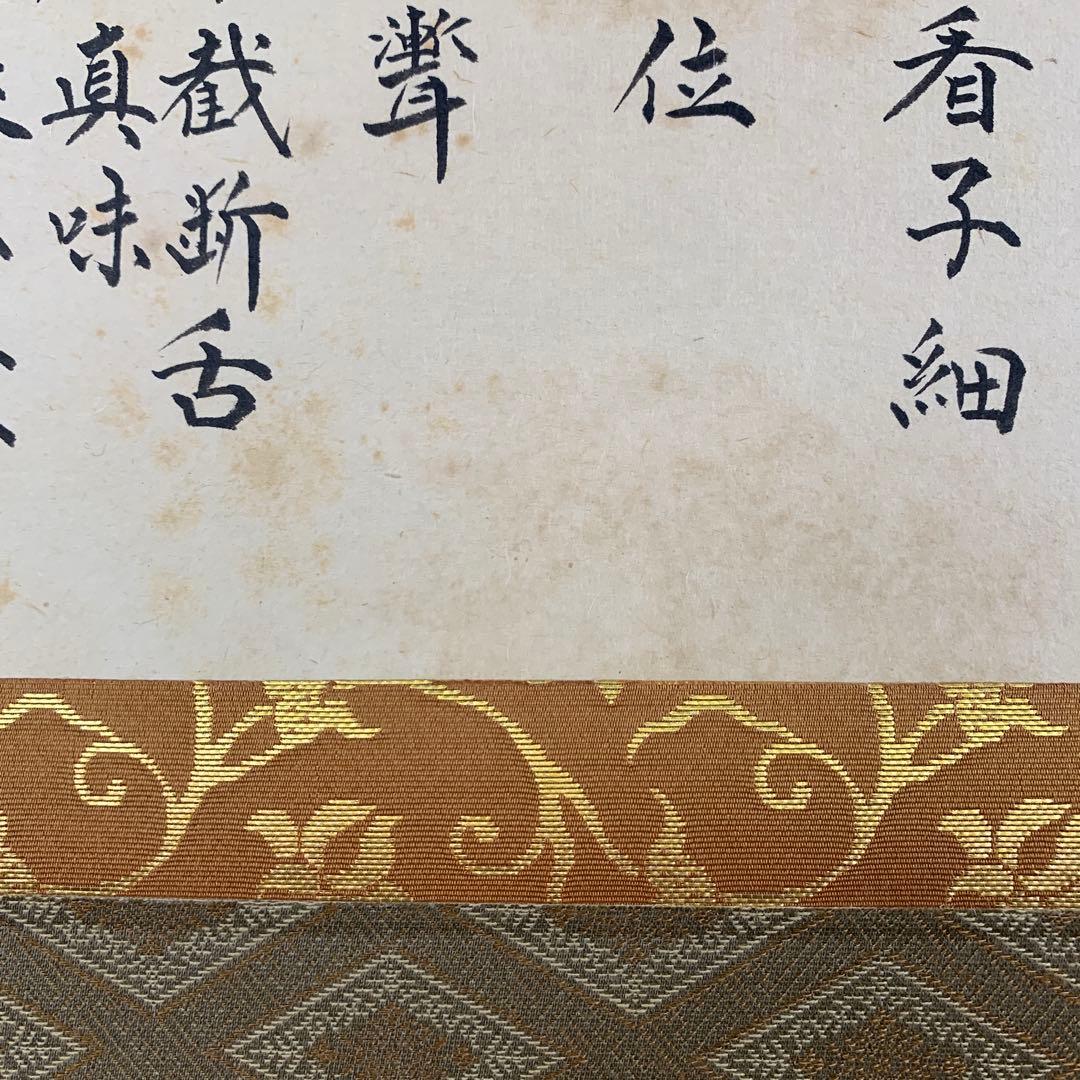 看子細
位
聻
截断舌
真味